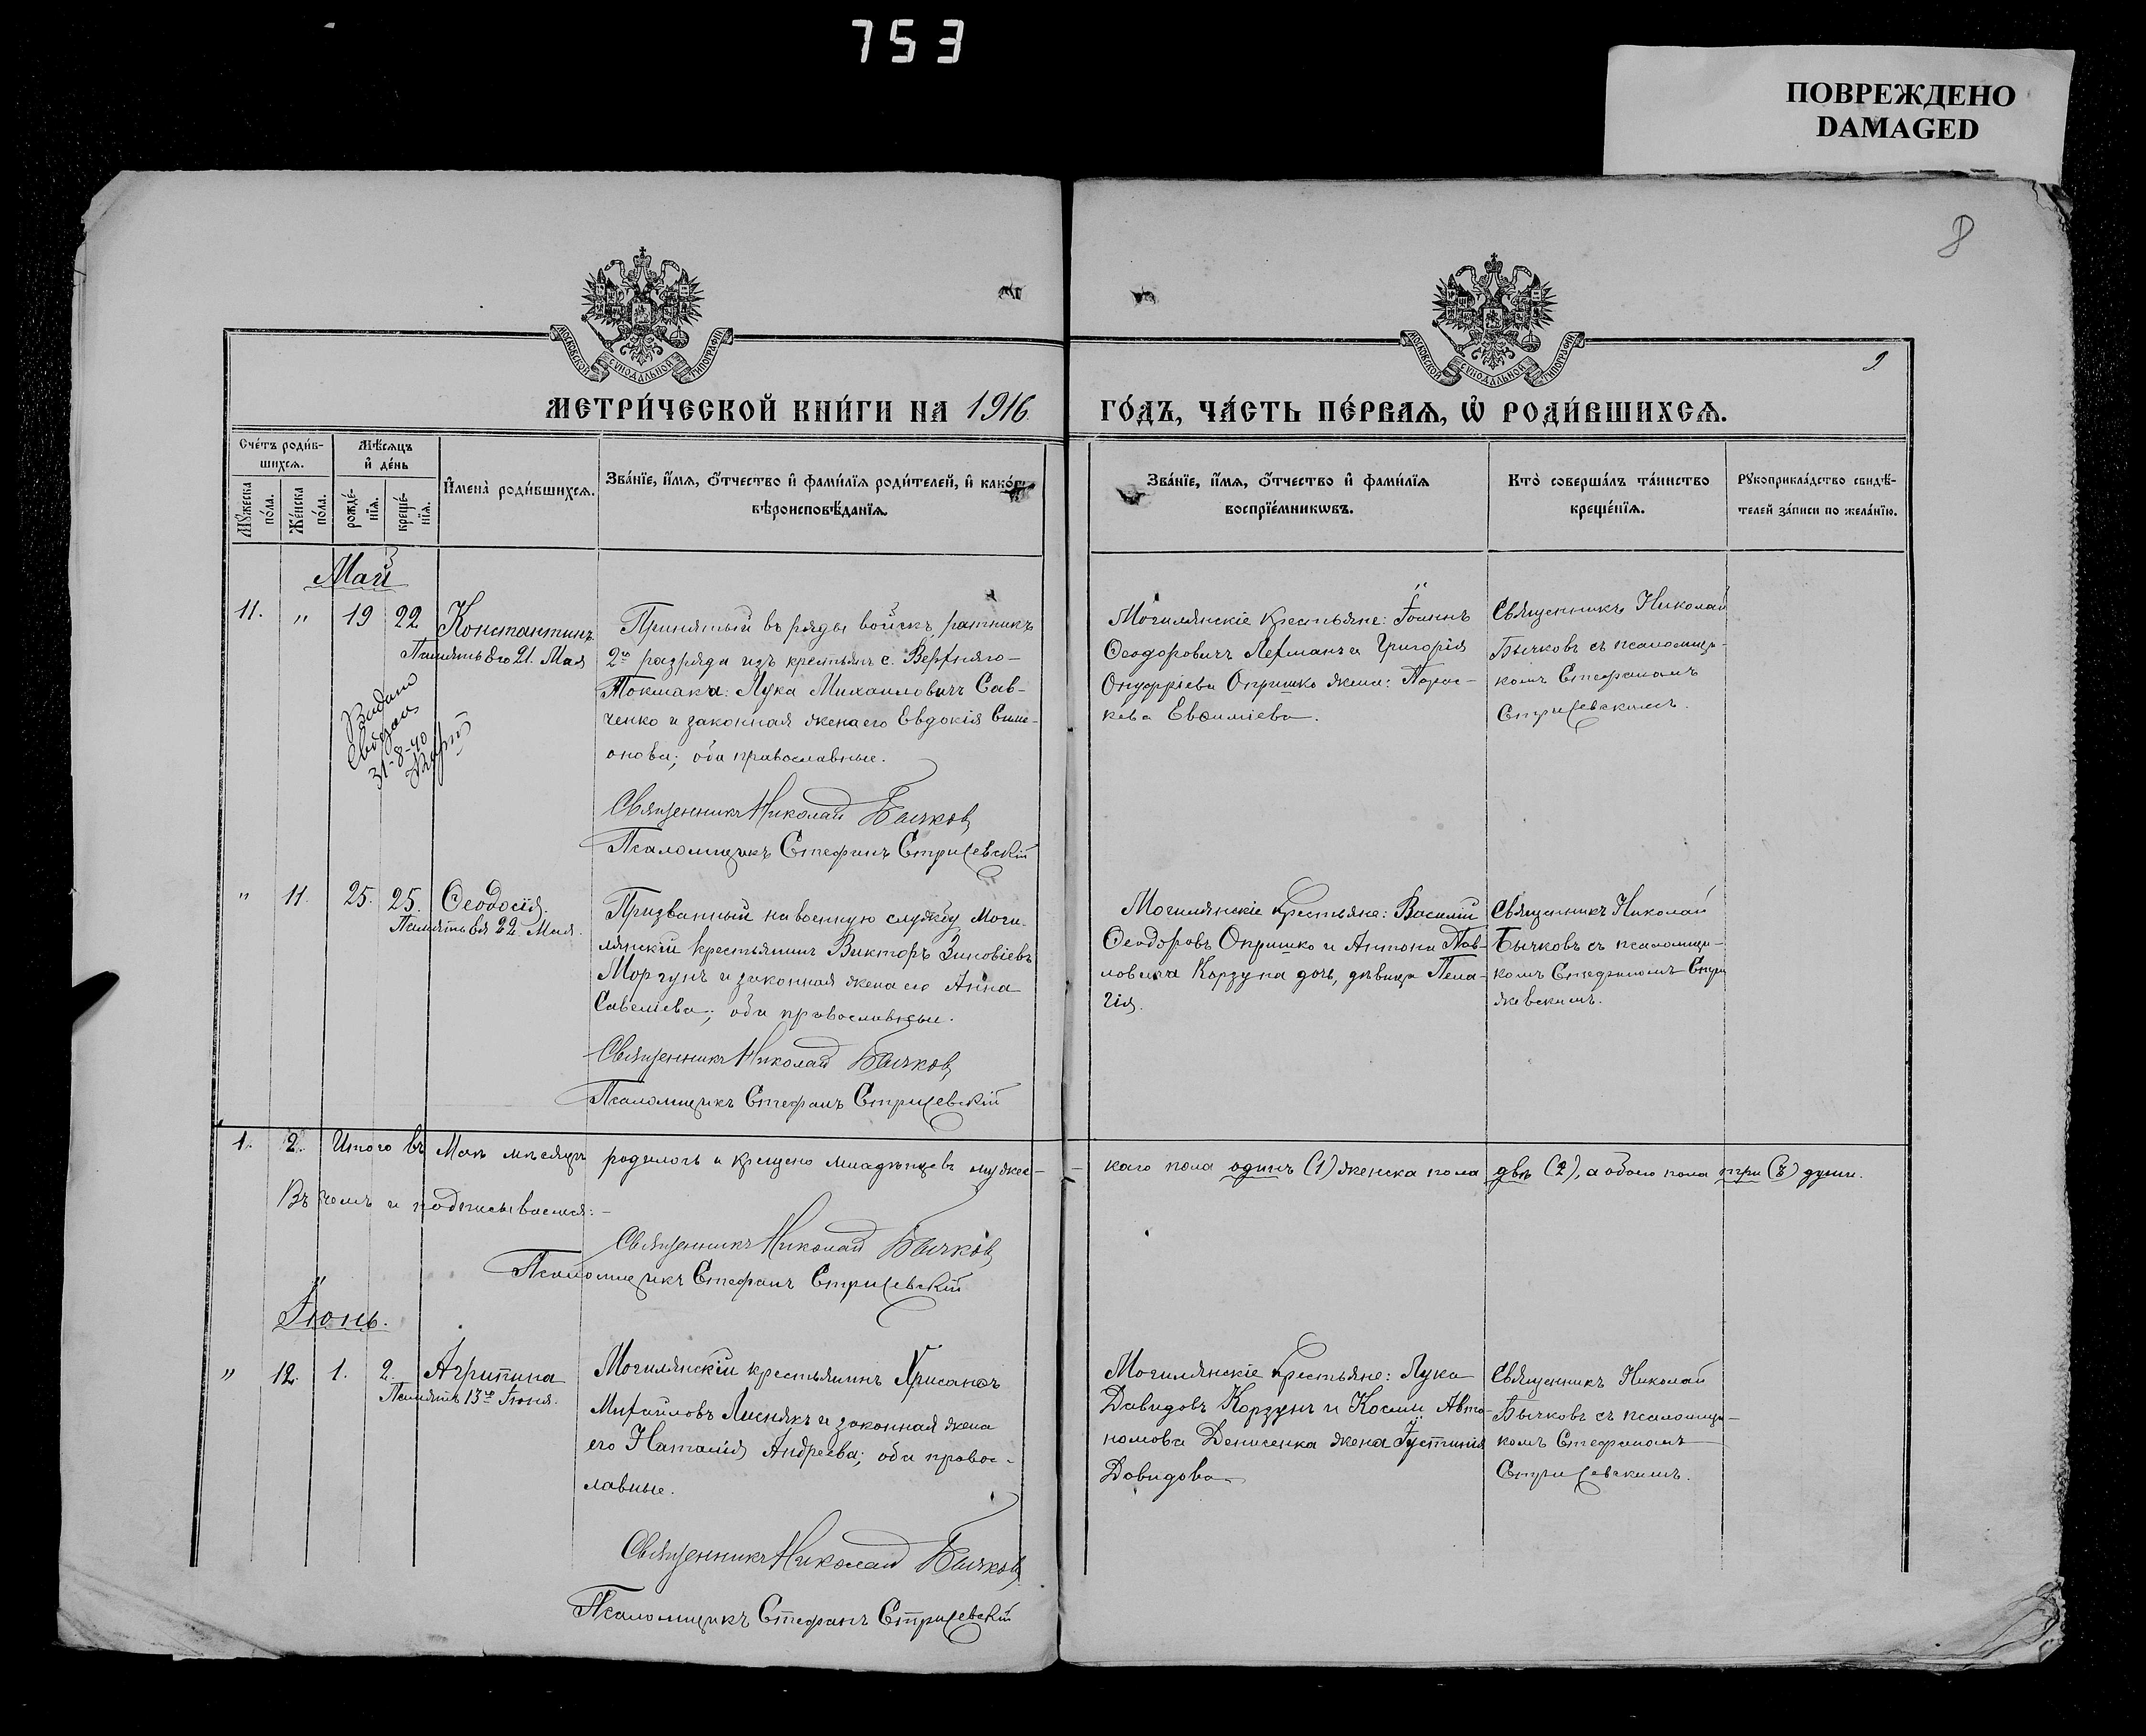 753
ПОВРЕЖДЕНО
DAMAGED
8
МОСКОВСКОЙ СУНОДАЛЬНОЙ ТИПОГРАФІИ
МОСКОВСКОЙ СУНОДАЛЬНОЙ ТИПОГРАФІИ
9
МЕТРИ́ЧЕСКОЙ КНИ́ГИ НА 1916
ГО́ДЪ, ЧА́СТЬ ПЕ́РВАѦ, Ѡ҆ РОДИ́ВШИХСѦ.
Сче́тъ роди́в-
шихсѧ.
Мѣ́сѧцъ
и҆ де́нь
Мꙋ́жеска
по́ла.
Же́нска
по́ла.
рожде́-
нїѧ.
креще́-
нїѧ.
И҆мена̀ роди́вшихсѧ.
Зва́нїе, и҆́мѧ, ѻ҆́тчество и҆ фами́лїѧ роди́телей, и҆ како́гѡ
вѣроисповѣ́данїѧ.
Зва́нїе, и҆́мѧ, ѻ҆́тчество и҆ фами́лїѧ
воспрїе́мникѡвъ.
Кто̀ соверша́лъ та́инство
креще́нїѧ.
Рꙋкоприкла́дство свидѣ́-
телей за́писи по жела́нїю.
Май
11. " 19 22 Константинъ
Память его 21. Мая
Видано
31-8-40
Принятый въ ряды войскъ, ратникъ
2го разряда изъ крестьянъ с. Верхняго-
Токмака: Лука Михаиловичъ Сав-
ченко и законная жена его Евдокія Симе-
онова; оба православные.
Священникъ Николай Бычковъ
Псаломщикъ Стефанъ Стрижевскій
Могилянскіе крестьяне: Іоаннъ
Ѳеодоровичъ Лехманъ и Григорія
Онуфріева Опришко жена: Парас-
кева Евѳиміева.
Священникъ Николай
Бычковъ съ псаломщи-
комъ Стефаномъ
Стрижевскимъ.
" 11. 25. 25. Ѳеодосія.
Память ея 22. Мая.
Призванный на военную службу Моги-
лянскій крестьянинъ Викторъ Зиновіевъ
Моргунъ и законная жена его Анна
Савеліева; оба православные.
Священникъ Николай Бычковъ
Псаломщикъ Стефанъ Стрижевскій
Могилянскіе крестьяне: Василій
Ѳеодоровъ Опришко и Антона Пав-
ловича Корзуна дочь, дѣвица Пела-
гія.
Священникъ Николай
Бычковъ съ псаломщи-
комъ Стефаномъ Стри-
жевскимъ.
1. 2. Итого въ Маѣ мѣсяцѣ родилось и крещено младенцевъ мужес-
каго пола одинъ (1) женска пола двѣ (2), а обоего пола три (3) души.
Въ чемъ и подписываемся:-
Священникъ Николай Бычковъ
Псаломщикъ Стефанъ Стрижевскій
Іюнь.
" 12. 1. 2. Агрипина
Память 13го Іюня.
Могилянскій крестьянинъ Хрисанѳъ
Михайловъ Лиснякъ и законная жена
его Наталія Андреева; оба правос-
лавные.
Священникъ Николай Бычковъ
Псаломщикъ Стефанъ Стрижевскій
Могилянскіе крестьяне: Лука
Давидовъ Корзунъ и Косьмы Авто-
номова Денисенка жена Іустинія
Давидова
Священникъ Николай
Бычковъ съ псаломщи-
комъ Стефаномъ
Стрижевскимъ.